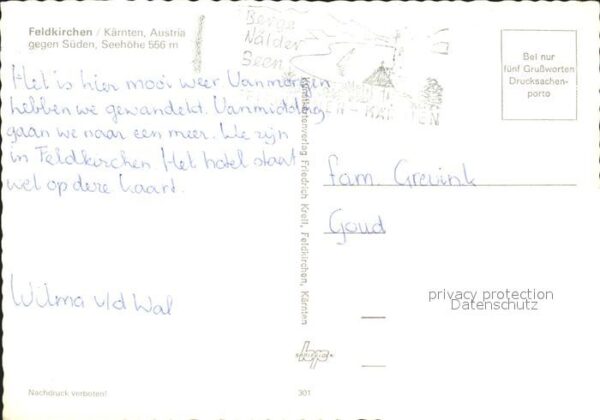 Feldkirchen / Kärnten, Austria
gegen Süden, Seehöhe 556 m
Berge
Wälder
Seen
KÄRNTEN
Bei nur
fünf Grußworten
Drucksachen-
porto
Het is hier mooi weer Vanmorgen
hebben we gewandeld. Vanmiddag
gaan we naar een meer. We zijn
in Feldkirchen. Het hotel staat
wel op deze kaart.
Wilma v/d Wal
Ansichtkartenverlag Friedrich Kroll, Feldkirchen, Kärnten
fam. Grevink
Goud
privacy protection
Datenschutz
Nachdruck verboten!
301